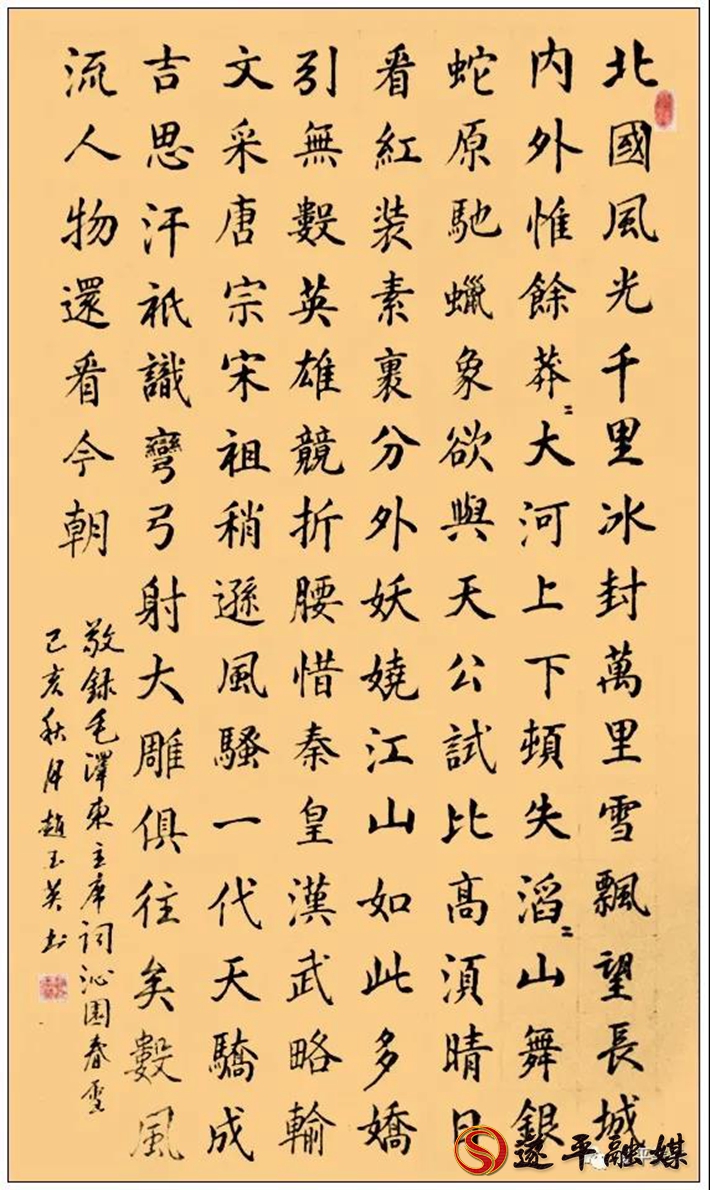 北國風光千里冰封萬里雪飄望長城
内外惟餘莽〻大河上下頓失滔〻山舞銀
蛇原馳蠟象欲與天公試比高須晴日
看紅装素裹分外妖嬈江山如此多嬌
引無數英雄競折腰惜秦皇漢武略輸
文采唐宗宋祖稍遜風騷一代天驕成
吉思汗祇識彎弓射大雕俱往矣數風
流人物還看今朝
敬録毛澤東主席詞沁園春雪
己亥秋月趙玉英书
遂平融媒